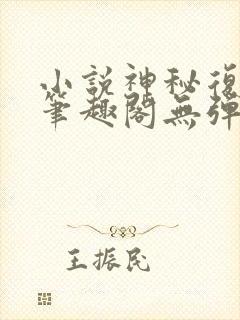 小說神秘復
筆趣閣無彈
王振民